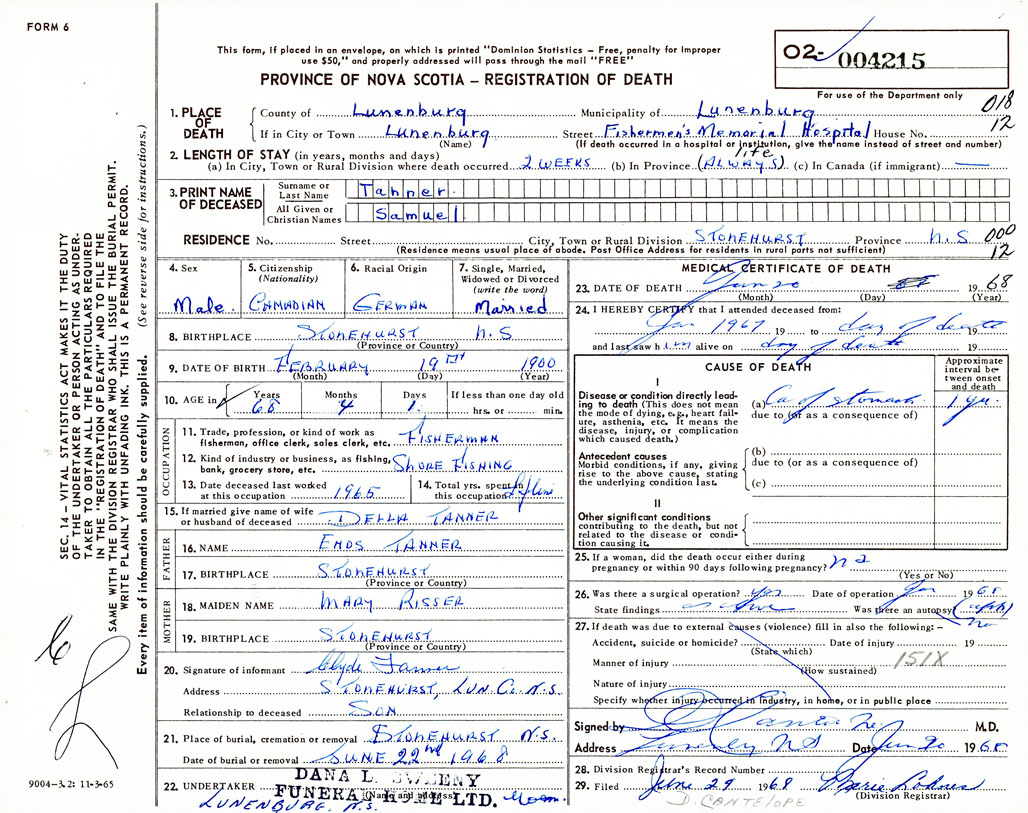 FORM 6
This form, if placed in an envelope, on which is printed "Dominion Statistics – Free, penalty for improper
use $50," and properly addressed will pass through the mail "FREE"
PROVINCE OF NOVA SCOTIA – REGISTRATION OF DEATH
02- 004215
For use of the Department only
018
12
SEC. 14 – VITAL STATISTICS ACT MAKES IT THE DUTY
OF THE UNDERTAKER OR PERSON ACTING AS UNDER-
TAKER TO OBTAIN ALL THE PARTICULARS REQUIRED
IN THE "REGISTRATION OF DEATH" AND TO FILE THE
SAME WITH THE DIVISION REGISTRAR WHO SHALL ISSUE THE BURIAL PERMIT.
WRITE PLAINLY WITH UNFADING INK. THIS IS A PERMANENT RECORD.
Every item of information should be carefully supplied. (See reverse side for instructions.)
1. PLACE OF DEATH
County of Lunenburg Municipality of Lunenburg
If in City or Town Lunenburg Street Fishermen's Memorial Hospital House No.
(Name) (If death occurred in a hospital or institution, give the name instead of street and number)
2. LENGTH OF STAY (in years, months and days) life
(a) In City, Town or Rural Division where death occurred 2 WEEKS (b) In Province (ALWAYS) (c) In Canada (if immigrant) —
3. PRINT NAME OF DECEASED
Surname or Last Name Tanner
All Given or Christian Names Samuel
RESIDENCE No. Street City, Town or Rural Division STONEHURST Province N.S 000
(Residence means usual place of abode. Post Office Address for residents in rural parts not sufficient) 12
4. Sex Male
5. Citizenship (Nationality) CANADIAN
6. Racial Origin GERMAN
7. Single, Married, Widowed or Divorced (write the word) Married
8. BIRTHPLACE STONEHURST N.S
(Province or Country)
9. DATE OF BIRTH FEBRUARY 19 1900
(Month) (Day) (Year)
10. AGE in Years 68 Months 4 Days 1 If less than one day old
hrs. or min.
OCCUPATION
11. Trade, profession, or kind of work as
fisherman, office clerk, sales clerk, etc. FISHERMAN
12. Kind of industry or business, as fishing,
bank, grocery store, etc. SHORE FISHING
13. Date deceased last worked
at this occupation 1965
14. Total yrs. spent in
this occupation
15. If married give name of wife
or husband of deceased DELLA TANNER
FATHER
16. NAME ENOS TANNER
17. BIRTHPLACE STONEHURST
(Province or Country)
MOTHER
18. MAIDEN NAME MARY RISSER
19. BIRTHPLACE STONEHURST
(Province or Country)
20. Signature of informant Clyde Tanner
Address STONEHURST, LUN. Co. N.S.
Relationship to deceased SON
21. Place of burial, cremation or removal STONEHURST N.S.
Date of burial or removal JUNE 22nd 1968
22. UNDERTAKER DANA L. SWEENY
FUNERAL HOME LTD.
(Name and address)
LUNENBURG, N.S.
9004-3.2: 11-3-65
MEDICAL CERTIFICATE OF DEATH
23. DATE OF DEATH Jun 20 1968
(Month) (Day) (Year)
24. I HEREBY CERTIFY that I attended deceased from:
Jan 1967 19 to day of death 19
and last saw him alive on day of death 19
CAUSE OF DEATH
Approximate interval between onset and death
I
Disease or condition directly lead-
ing to death (This does not mean
the mode of dying, e.g., heart fail-
ure, asthenia, etc. It means the
disease, injury, or complication
which caused death.)
(a) Ca of stomach 1 yr.
due to (or as a consequence of)
Antecedent causes
Morbid conditions, if any, giving
rise to the above cause, stating
the underlying condition last.
(b)
due to (or as a consequence of)
(c)
II
Other significant conditions
contributing to the death, but not
related to the disease or condi-
tion causing it.
25. If a woman, did the death occur either during
pregnancy or within 90 days following pregnancy?
(Yes or No)
26. Was there a surgical operation? Yes Date of operation Jan 1968
State findings as above Was there an autopsy? no
27. If death was due to external causes (violence) fill in also the following: –
Accident, suicide or homicide? Date of injury 19
(State which)
Manner of injury 151X
(How sustained)
Nature of injury
Specify whether injury occurred in industry, in home, or in public place
Signed by M.D.
Address Lunenburg NS Date Jun 20 1968
28. Division Registrar's Record Number
29. Filed June 29 1968 Marie Lohnes
(Division Registrar)
D. CANTELOPE